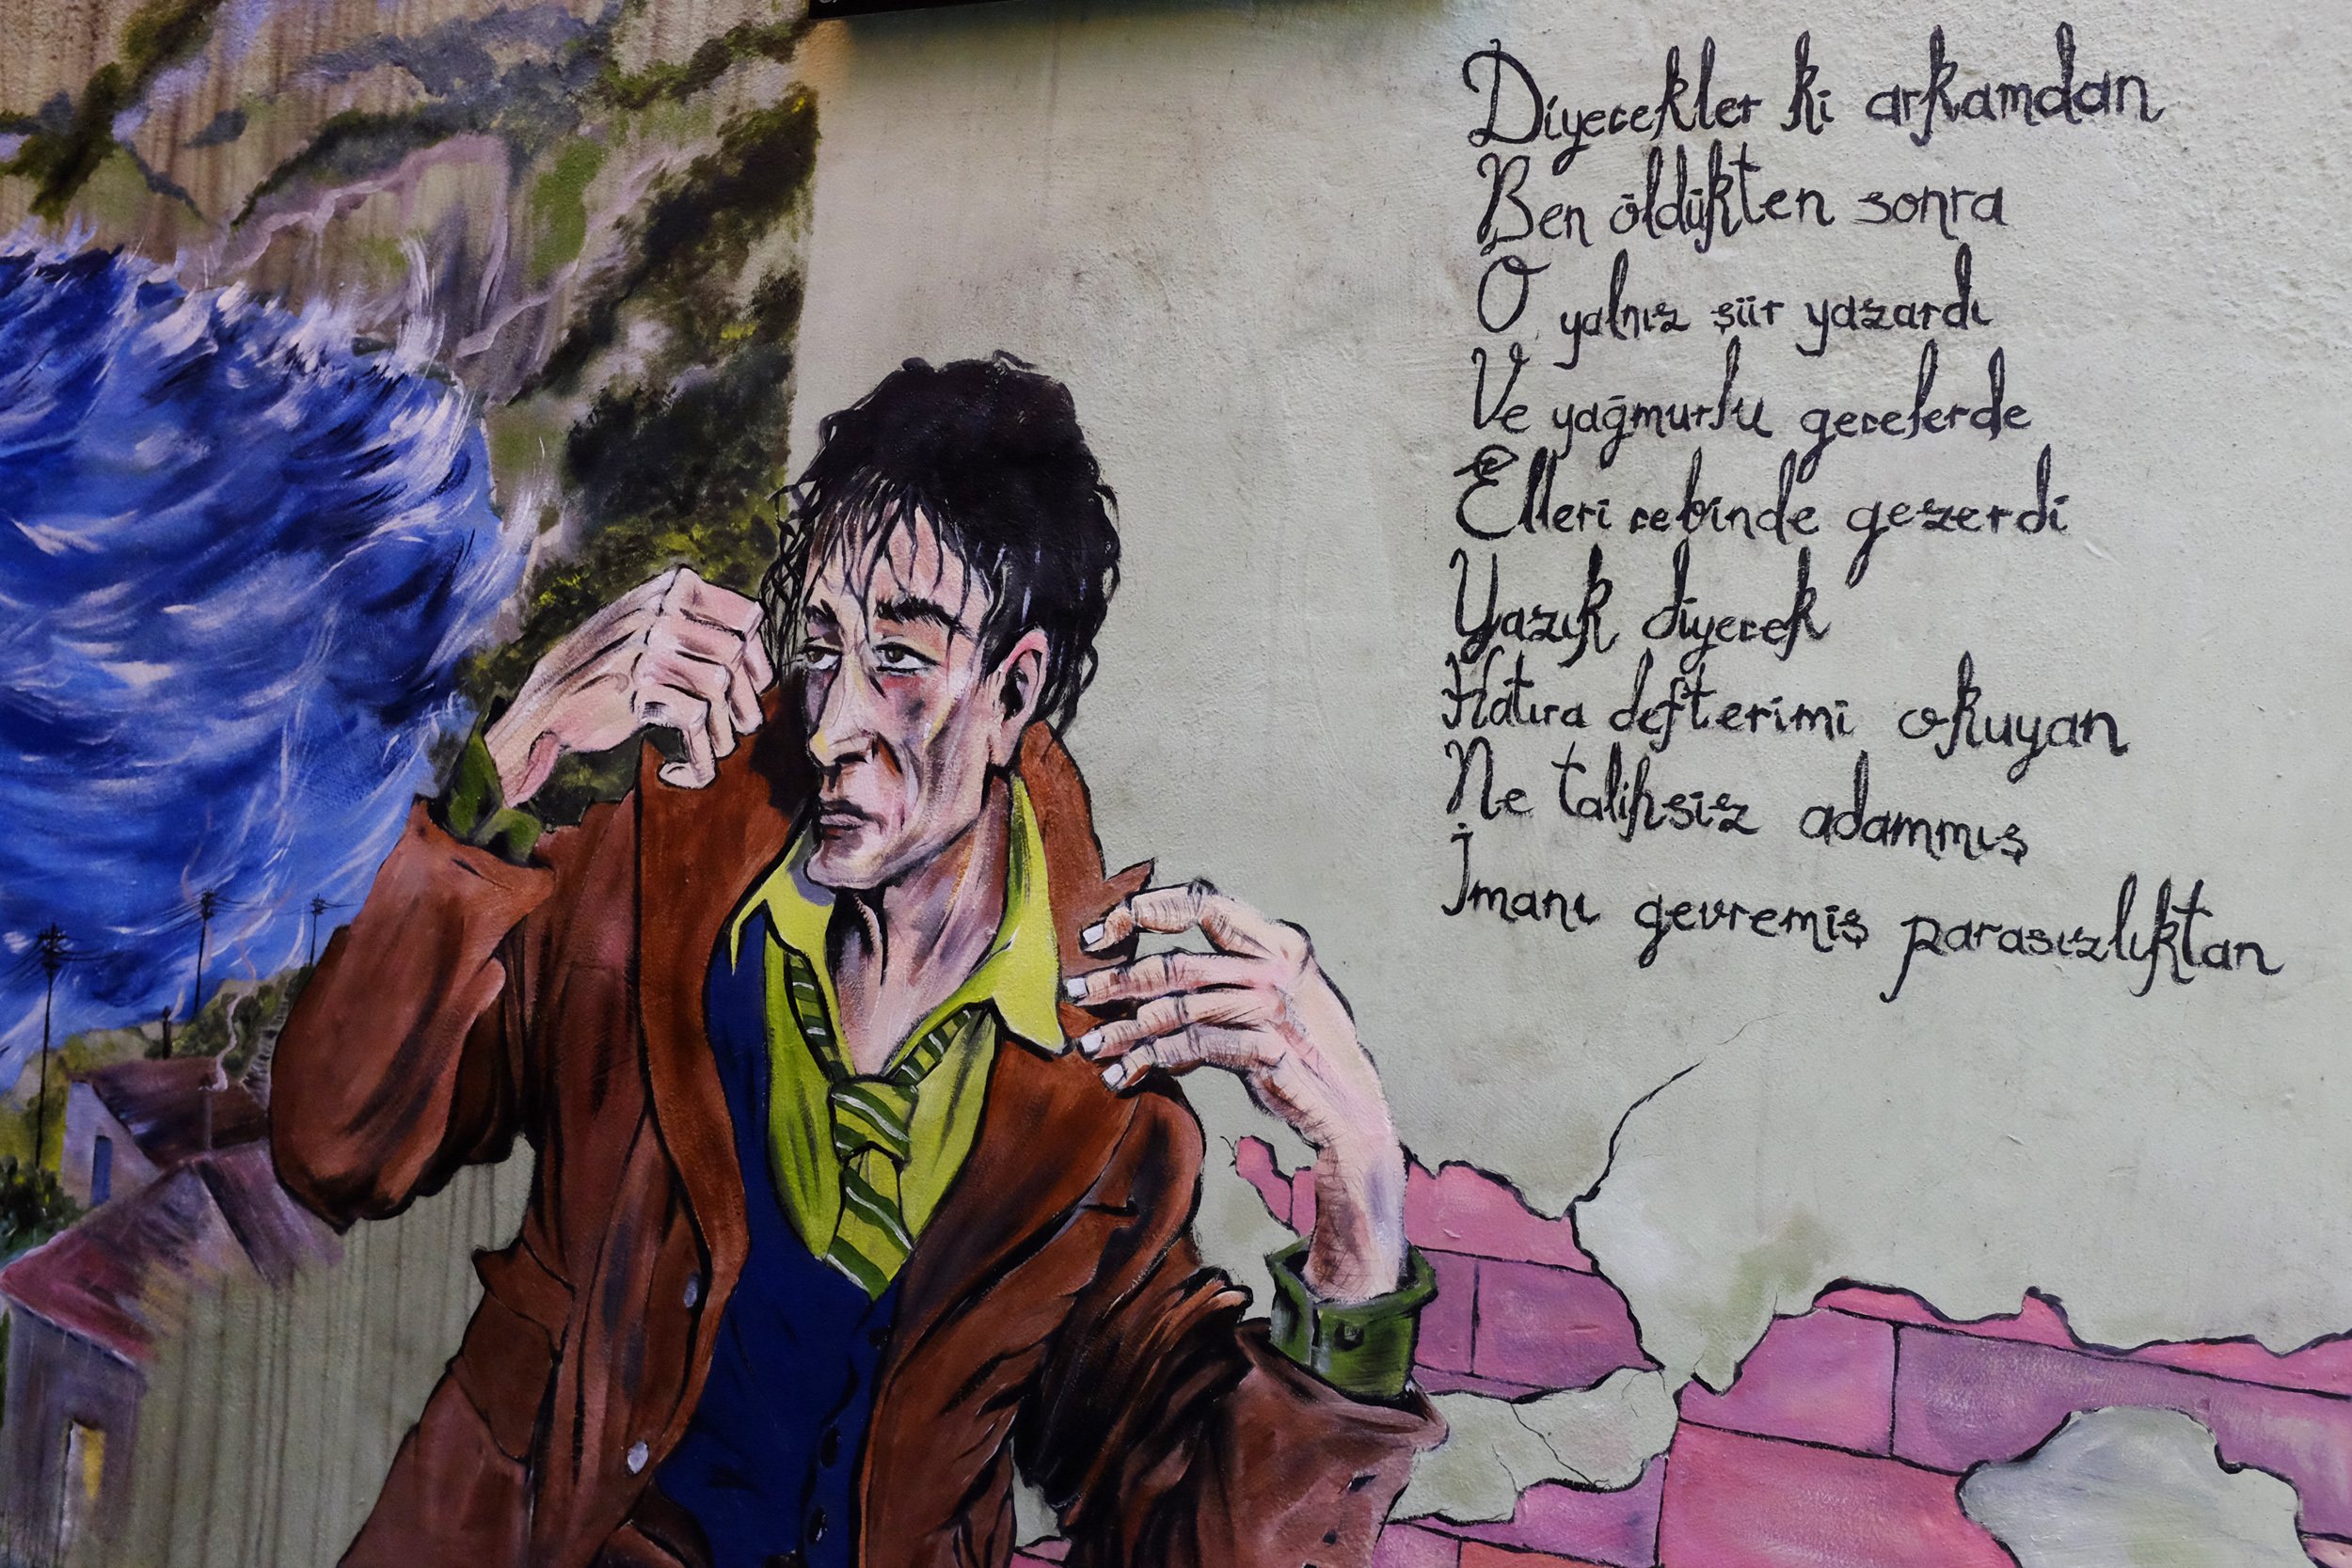 Diyecekler ki arkamdan
Ben öldükten sonra
O yalnız şiir yazardı
Ve yağmurlu gecelerde
Elleri cebinde gezerdi
Yazık diyecek
Hatıra defterimi okuyan
Ne talihsiz adammış
İmanı gevremiş parasızlıktan